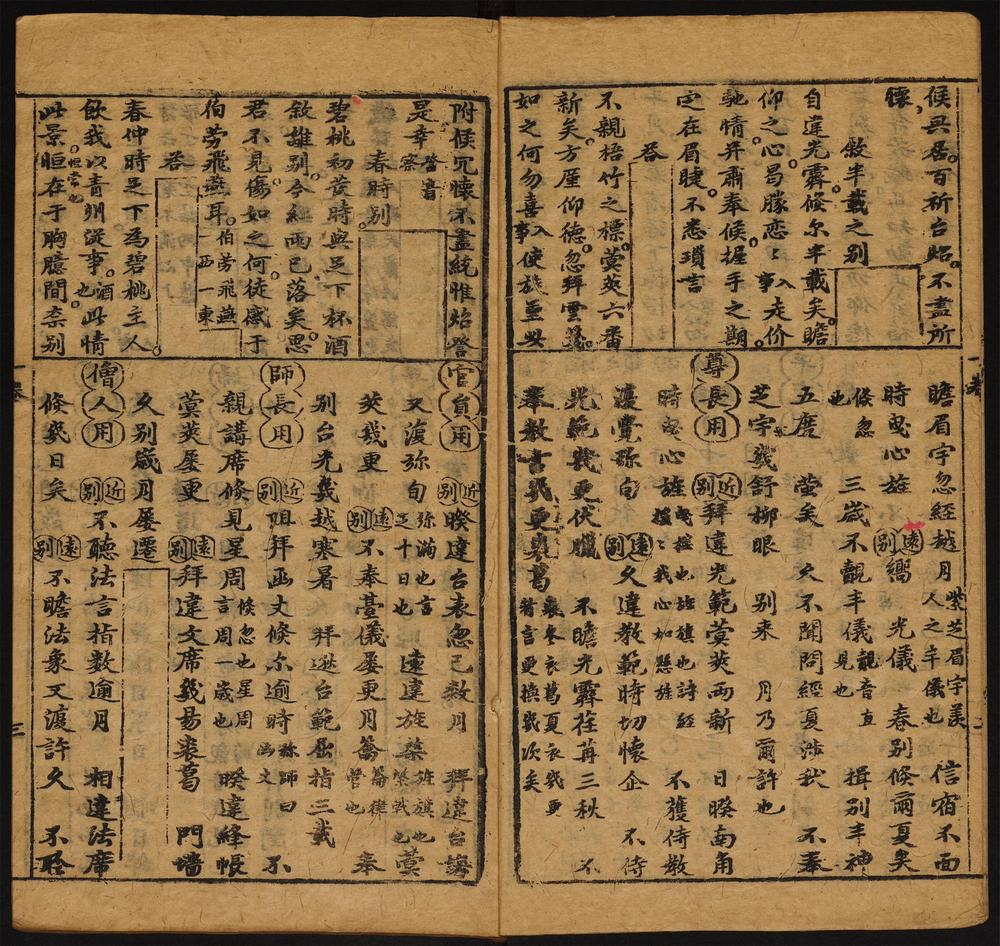 候興居百祈台炤不盡所
懷
敘半載之別
自違光霽倏尔半載矣瞻
仰之心曷勝恋〻事入走价
馳情并肅奉候握手之期
定在眉睫不悉瑣言
荅
不親梧竹之標蓂莢六番
新矣方厪仰德忽拜雲箋
如之何勿喜事入使旋亟此
瞻眉宇忽經越月紫芝眉宇羨人之丰儀也 信宿不面
時曳心旌遠別嚮光儀 春別倏爾夏矣
倏忽也 三歲不覿丰儀覿音直見也 揖別丰神
五度蓂矣 久不聞問經夏涉秋 不奉
芝宇幾舒柳眼 別來 月乃爾許也
尊長用近別拜違光範蓂莢兩新 日暌南角
時曳心旌 不獲侍教
遠別久違教範時切懷企 不侍
光範幾更伏臘 不瞻光霽荏苒三秋 不
奉教言幾更裘葛裘冬衣葛夏衣幾更者言更換幾次矣
附候冗懷不盡統惟炤詧
是幸詧音察
春時別
碧桃初發時與足下杯酒
敘離別今經雨已落矣思
君不見傷如之何徒感于
伯勞飛燕耳伯勞飛燕一西一東
荅
春仲時足下為碧桃主人
飲我以青州從事酒也此情
此景恒在于胸臆間柰別
官員用近別暌違台表忽已數月 拜違台誨
又復弥旬弥滿也言足十日也 遠違旌棨旌旗也棨戟也 蓂
莢幾更遠別不奉臺儀屢更月籥籥律管也 奉
別台光幾越寒暑 拜遜台範屈指三載
師長用近別阻拜函丈倏尓逾時称師曰函丈 不
親講席倏見星周倏忽也星周言周一歲也 暌違絳帳
蓂莢屢更遠別拜違文席幾易裘葛 門墻
久別歲月屢遷
僧人用近別不聽法言指數逾月 相違法席
倏幾日矣遠別不瞻法象又復許久 不聆